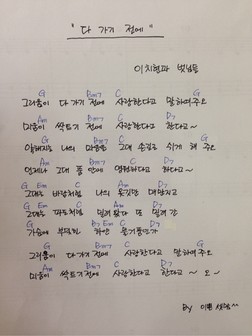 " 다 가기 전에 "
이치현과 벗님들
G Bm7 C D7 G
그리움이 다 가기 전에 사랑한다고 말하여 주오
Am Bm7 C D7
미움이 싹트기 전에 사랑한다 한다고~
G Bm7 C D7 G
나의 마음을 그대 손길로 쉬게 해 주오
Am Bm7 C D7
언제나 그대 품 안에 한다고 하다고~
G Em C D7
그대는 바람처럼 나의 옷깃만 매만지고
G Em C Am D7
그대는 파도처럼 밀려 왔다 또 밀려 간
G B7 Em C D7
가슴에 부딪힌 하얀 물거품인가
G Bm7 C D7 G
그리움이 다 가기 전에 사랑한다고 말하여 주오
Am Bm7 C D7 G
미움이 싹트기 전에 사랑한다 한다고~ 오~
By 이쁜